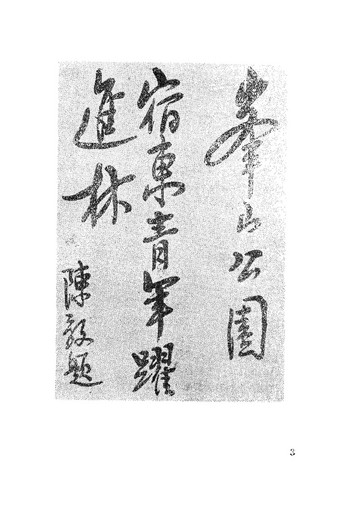 峯山公園
宿東青年躍
進林
陳毅題
3